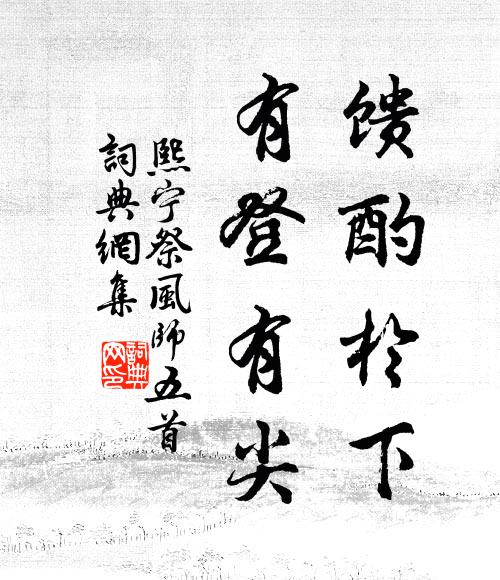 馈酌於下
有登有尖
熙宁祭風師五首
詞典網集
詞典網印